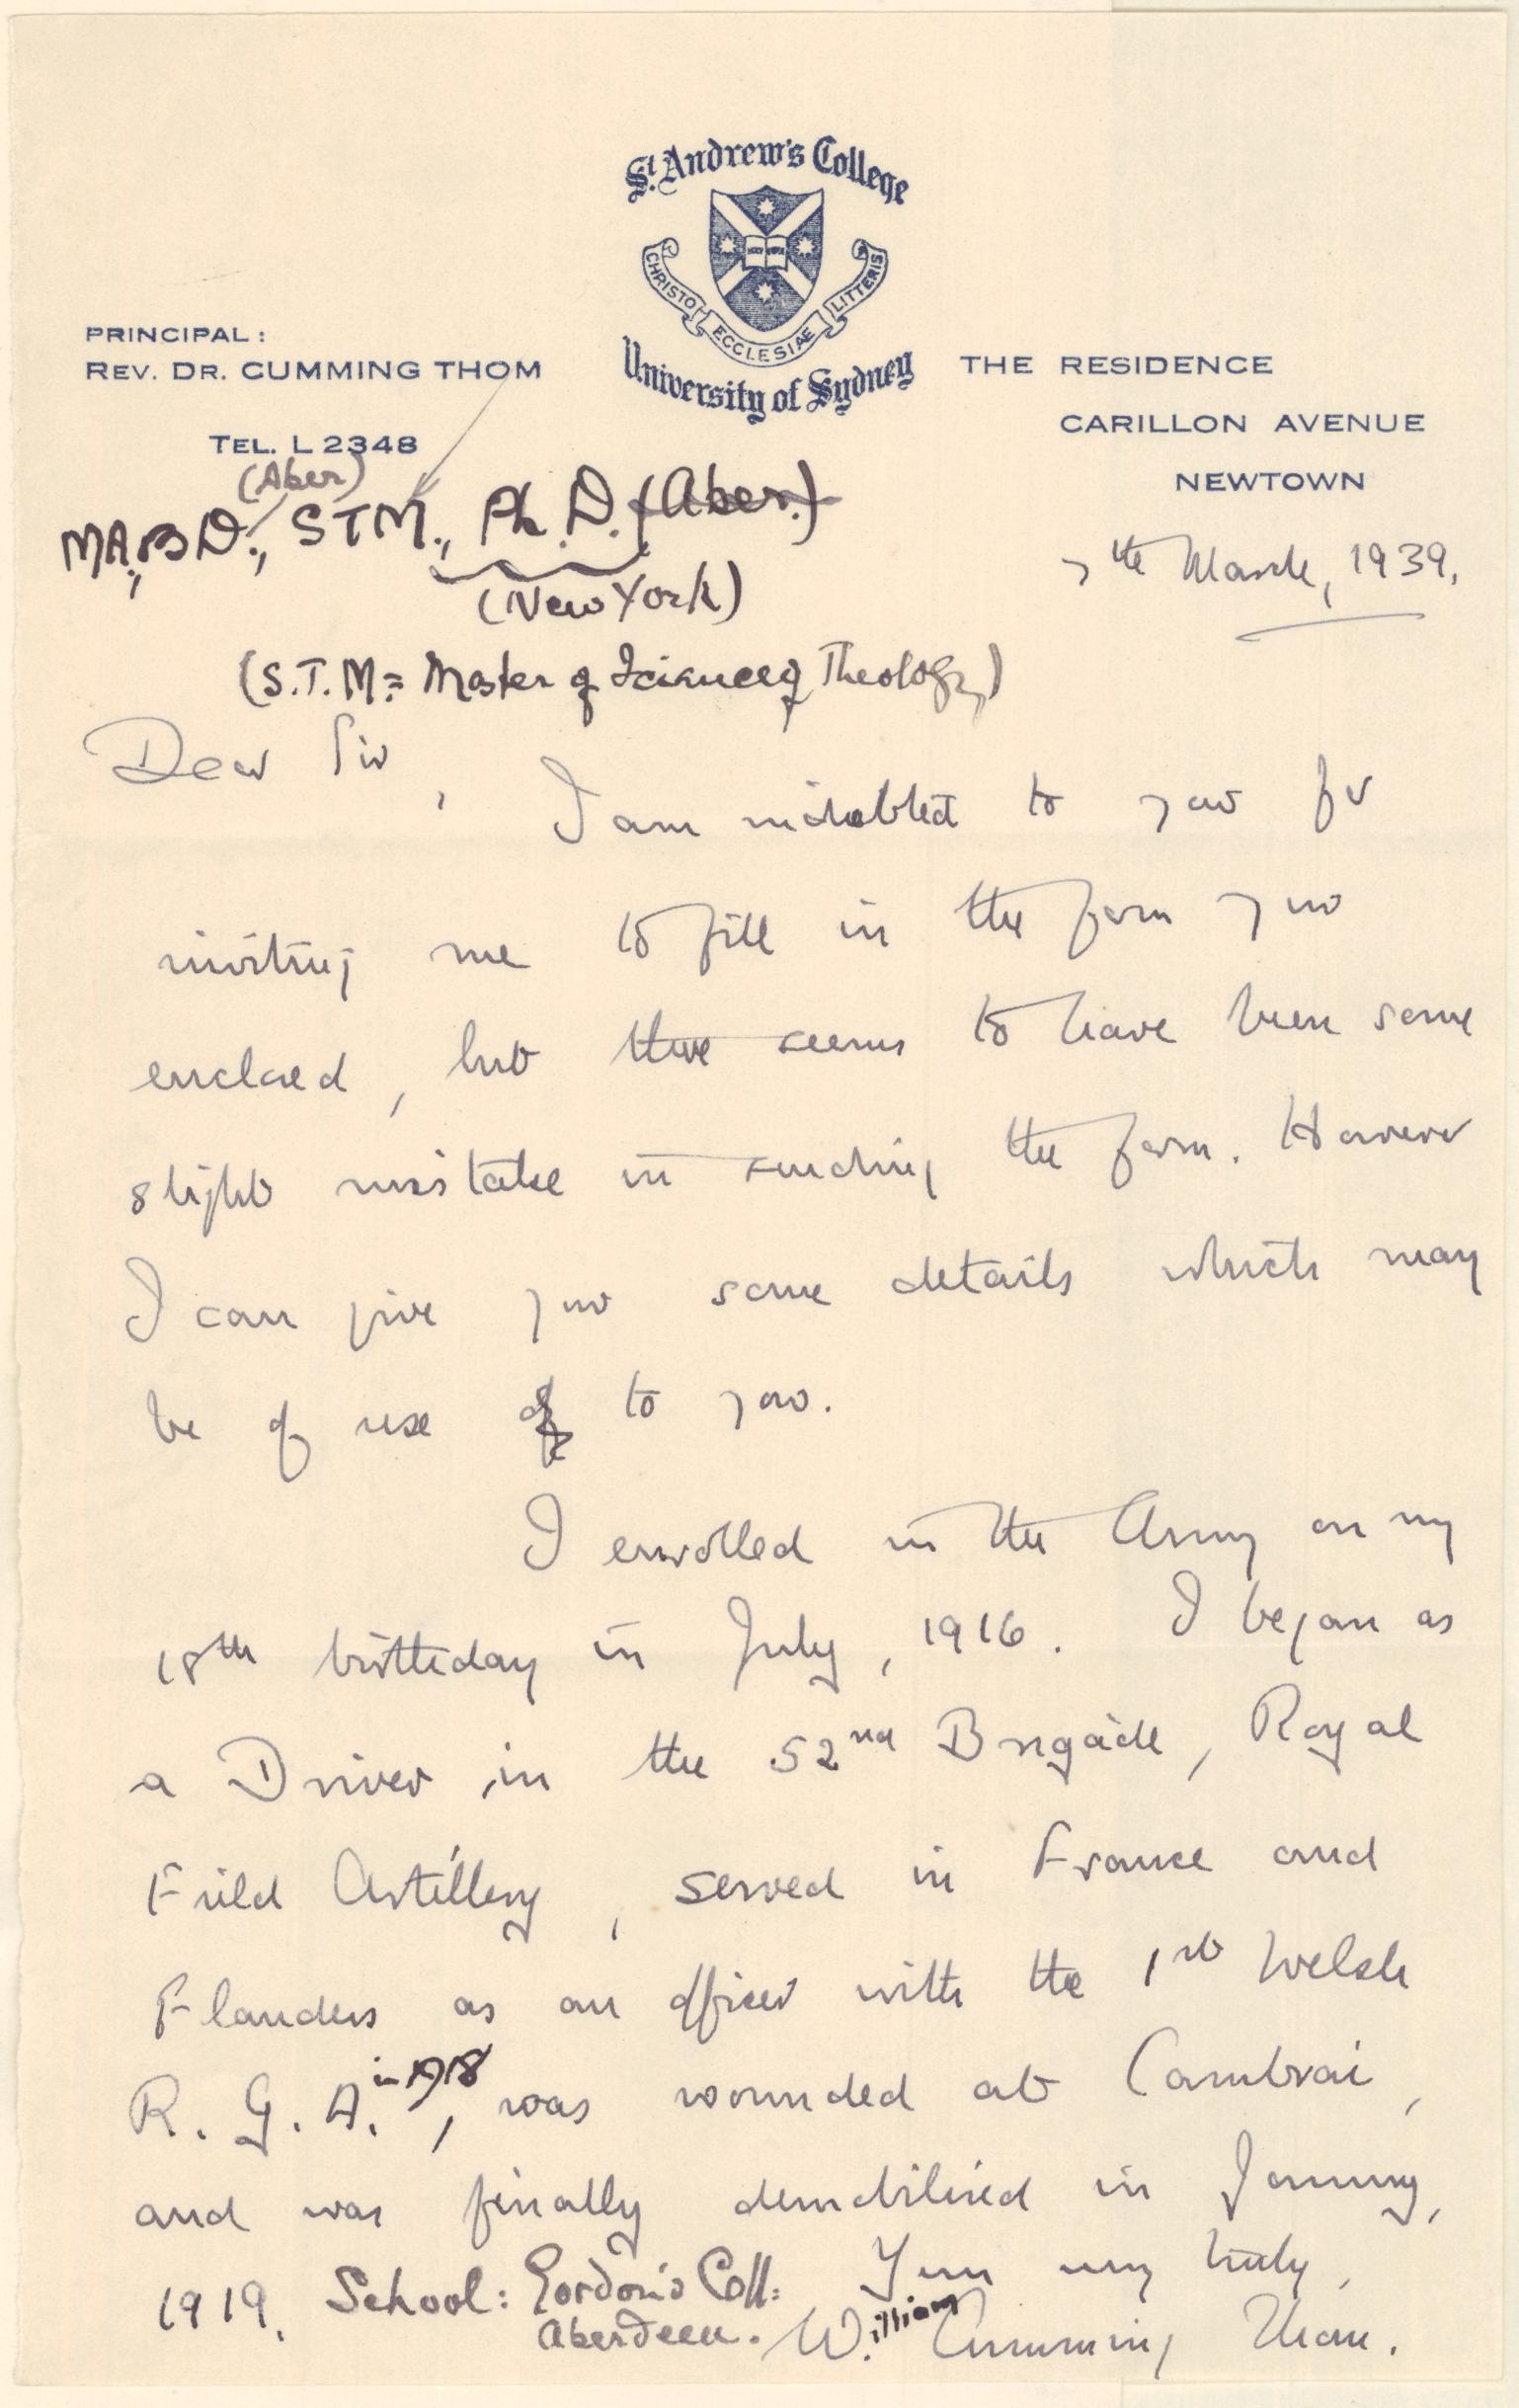 St. Andrew's College
HOLY BIBLE
CHRISTO ECCLESIAE LITTERIS
University of Sydney
PRINCIPAL:
REV. DR. CUMMING THOM
TEL. L 2348
THE RESIDENCE
CARILLON AVENUE
NEWTOWN
(Aber)
MA., B D., STM., Ph. D. (Aber.)
(New York)
7th March, 1939.
(S.T.M = Master of Science of Theology)
Dear Sir,
I am indebted to you for
inviting me to fill in the form you
enclosed, but there seems to have been some
slight mistake in sending the form. However
I can give you some details which may
be of use of to you.
I enrolled in the Army on my
18th birthday in July, 1916. I began as
a Driver in the 52nd Brigade, Royal
Field Artillery, served in France and
Flanders as an officer with the 1st Welsh
R. G. A. in 1918, was wounded at Cambrai,
and was finally demobilised in January,
1919. School: Gordon's Coll: Yours very truly,
Aberdeen. William Cumming Thom.